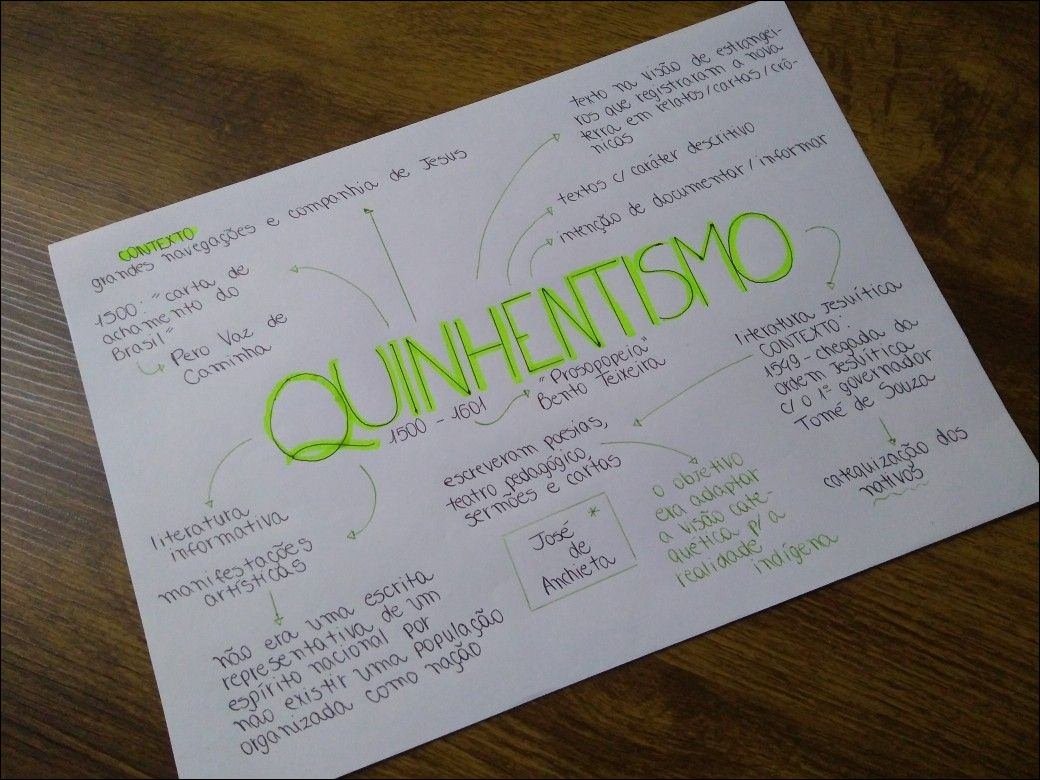 CONTEXTO
grandes navegações e companhia de Jesus
1500: "carta de
achamento do
Brasil"
Pero Vaz de
Caminha
texto na visão de estrangei-
ros que registraram a nova
terra em relatos/cartas/crô-
nicas
textos c/ caráter descritivo
intenção de documentar/informar
QUINHENTISMO
1500 - 1601
"Prosopopeia"
Bento Teixeira
literatura Jesuítica
CONTEXTO:
1549 - chegada da
ordem Jesuítica
c/ o 1º governador
Tomé de Souza
catequização dos
nativos
escreveram poesias,
teatro pedagógico,
sermões e cartas
José *
de
Anchieta
o objetivo
era adaptar
a visão cate-
quética p/ a
realidade
indígena
literatura
informativa
manifestações
artísticas
não era uma escrita
representativa de um
espírito nacional por
não existir uma população
organizada como nação